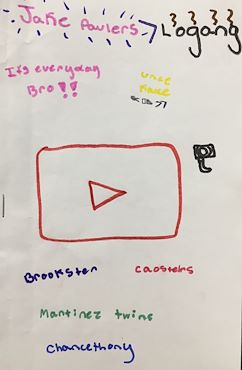 Jake Paulers
Logang
It's everyday
Bro!!
Brookster
Caosters
Martinez twins
Chancethony